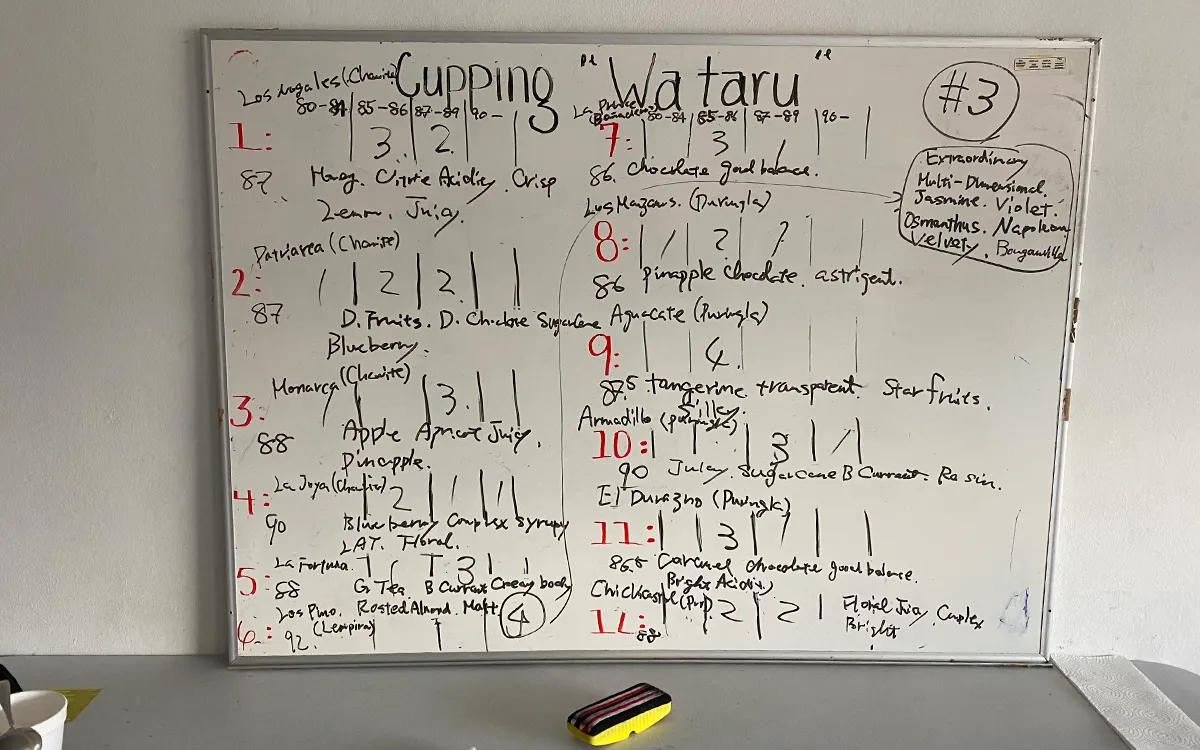 Cupping "Wataru"
#3
Los nogales (Chawite)
80-84 85-86 87-89 90-
1: 3. 2.
87 Honey. Citric Acidity. Crisp
Lemon. Juicy.
Patriarca (Chawite)
2: / 2 2.
87 D. Fruits. D. Choclate Sugarcane
Blueberry.
Monarca (Chawite)
3: / 3.
88 Apple Apricot Juicy.
pineapple.
La Joya (Chawite)
4: 2 / /
90 Blueberry Complex Syrupy
LAT. Floral.
La Fortuna.
5: 3
88 G. Tea. B Current Creamy body
Rosted Almond. Malt
Los Pino.
(Lempira)
6: 4
92
80-84 85-86 87-89 90-
7: 3 /
86. Chocolate good balance.
Los Mazanos. (Puringla)
8: / 2 /
86 pinapple chocolate. astrigent.
Aguacate (Puringla)
9: 4.
87.5 tangerine transparent. Star fruits.
Silky.
Armadillo (puringla)
10: 3 /
90 Juicy. Sugarcane B Current. Resin.
El Durazno (Puringla)
11: 3 /
86.5 Caramel chocolate good balance.
Bright Acidity
12: 2 2
88 Floral Juicy. Complex
Bright
Extraordinary
Multi-Dimensional
Jasmine. Violet.
Osmanthus. Napoleon
Velvety.